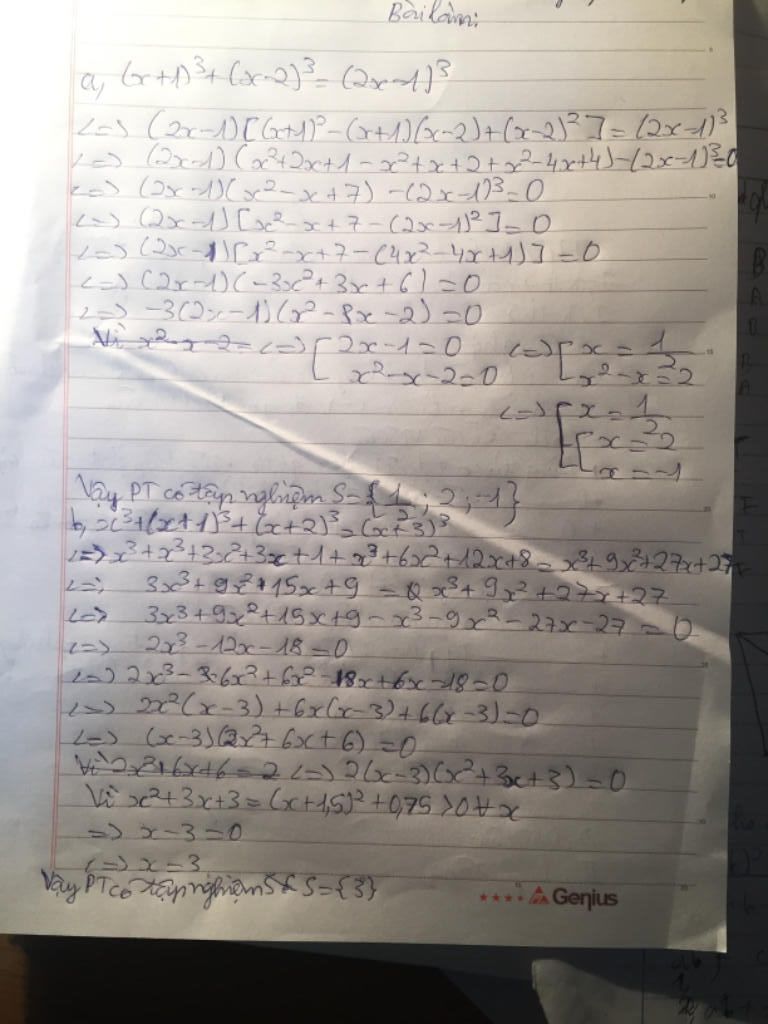 Bài làm:
a, (x+1)³+(x-2)³=(2x-1)³
<=> (2x-1)[(x+1)²-(x+1)(x-2)+(x-2)²]=(2x-1)³
<=> (2x-1)(x²+2x+1-x²+x+2+x²-4x+4)-(2x-1)³=0
<=> (2x-1)(x²-x+7)-(2x-1)³=0
<=> (2x-1)[x²-x+7-(2x-1)²]=0
<=> (2x-1)[x²-x+7-(4x²-4x+1)]=0
<=> (2x-1)(-3x²+3x+6)=0
<=> -3(2x-1)(x²-8x-2)=0
Vì x²-x-2= <=> [2x-1=0 <=> [x=1/2
x²-x-2=0 x²-x=2
<=> [x=1/2
[x=2
x=-1
Vậy PT có tập nghiệm S={1/2;2;-1}
b, x³+(x+1)³+(x+2)³=(x+3)³
<=> x³+x³+3x²+3x+1+x³+6x²+12x+8=x³+9x²+27x+27
<=> 3x³+9x²+15x+9=x³+9x²+27x+27
<=> 3x³+9x²+15x+9-x³-9x²-27x-27=0
<=> 2x³-12x-18=0
<=> 2x³-6x²+6x²-18x+6x-18=0
<=> 2x²(x-3)+6x(x-3)+6(x-3)=0
<=> (x-3)(2x²+6x+6)=0
Vì 2x²+6x+6=2 <=> 2(x-3)(x²+3x+3)=0
Vì x²+3x+3=(x+1,5)²+0,75>0∀x
=> x-3=0
<=> x=3
Vậy PT có tập nghiệm S={3}
Genius